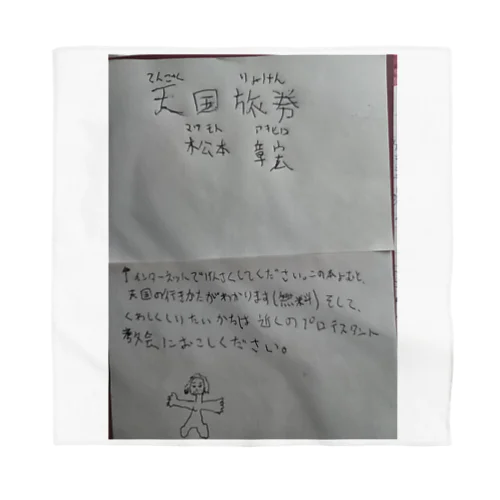 てんごく りょけん
天国旅券
まつもと アキヒロ
松本 章宏
↑インターネットでけんさくしてください。この本よむと、
天国の行きかたがわかります(無料)そして、
くわしくしりたいかたは 近くのプロテスタント
教会におこしください。